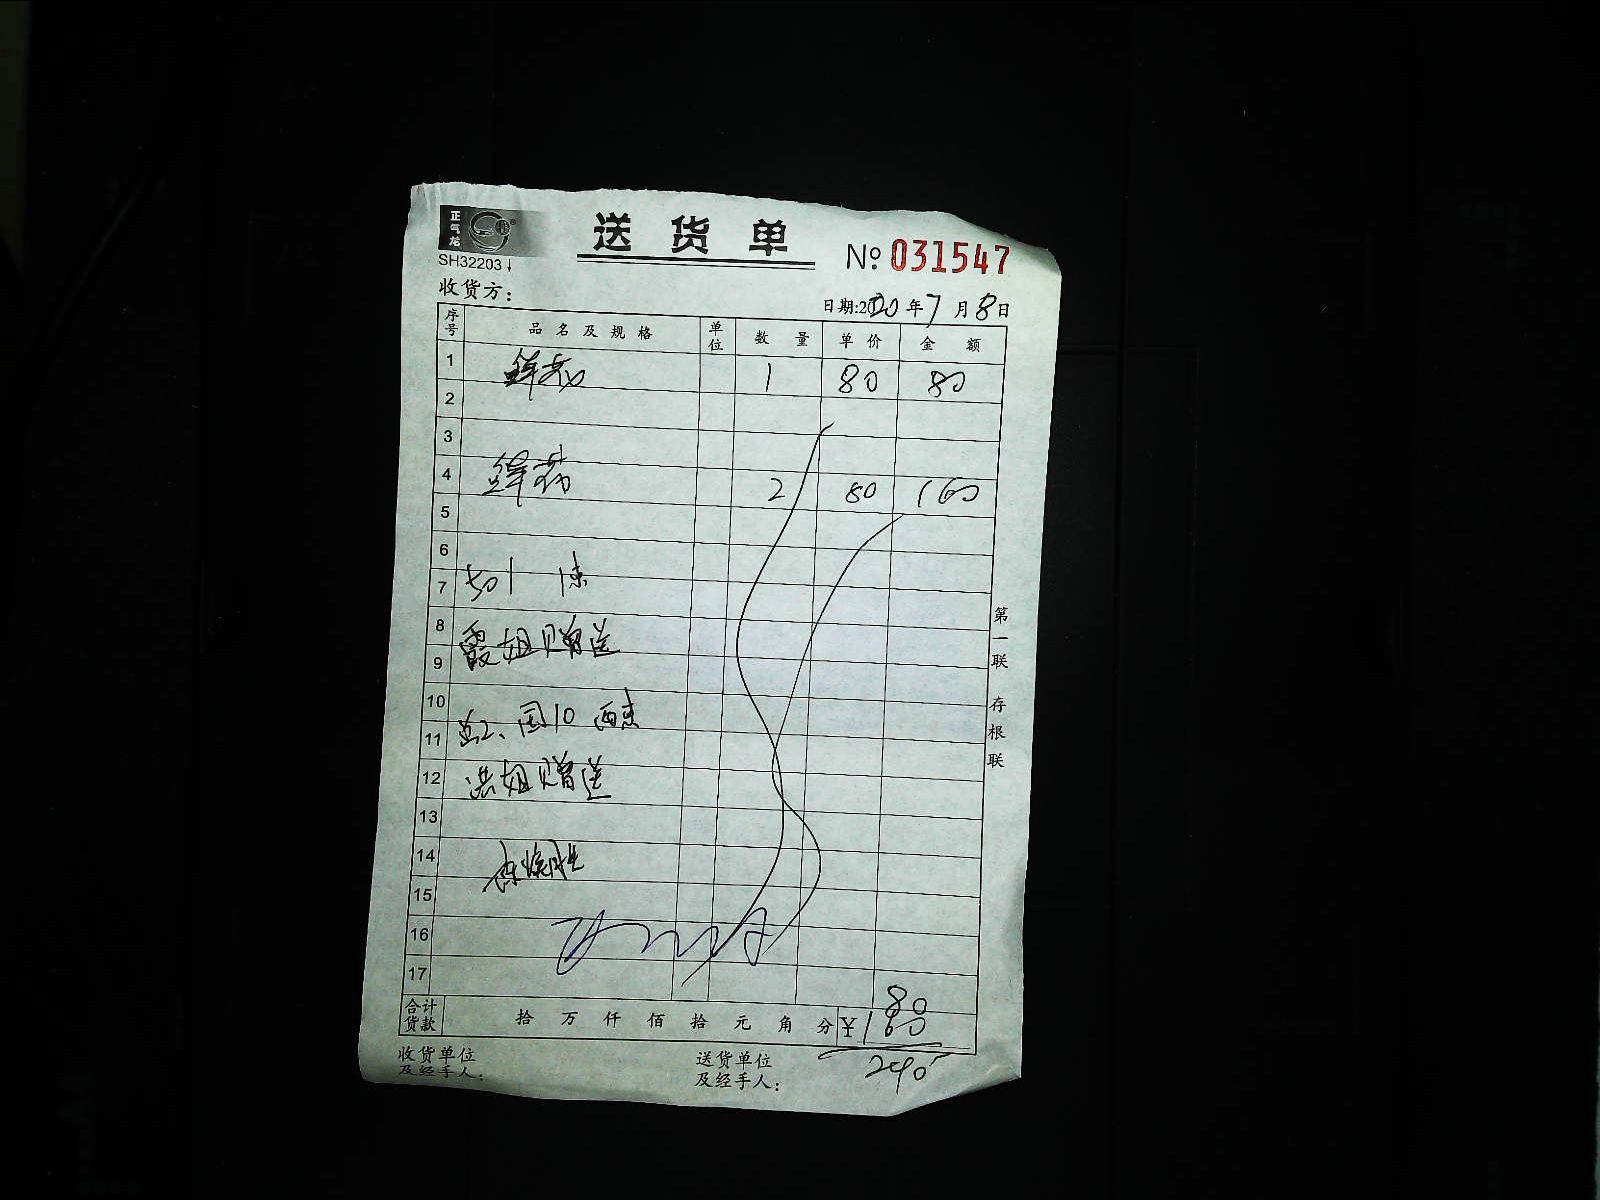 正气龙
送货单
№ 031547
SH32203
收货方：
日期:2020年7月8日
序号 品名及规格 单位 数量 单价 金额
1 鲜花 1 80 80
2
3
4 鲜花 2 80 160
5
6
7
8 霞姐赠送
9
10
11
12 洪姐赠送
13
14
15
16
17
80
合计货款 拾万仟佰拾元角分 ¥160
240
收货单位及经手人：
送货单位及经手人：
第一联 存根联